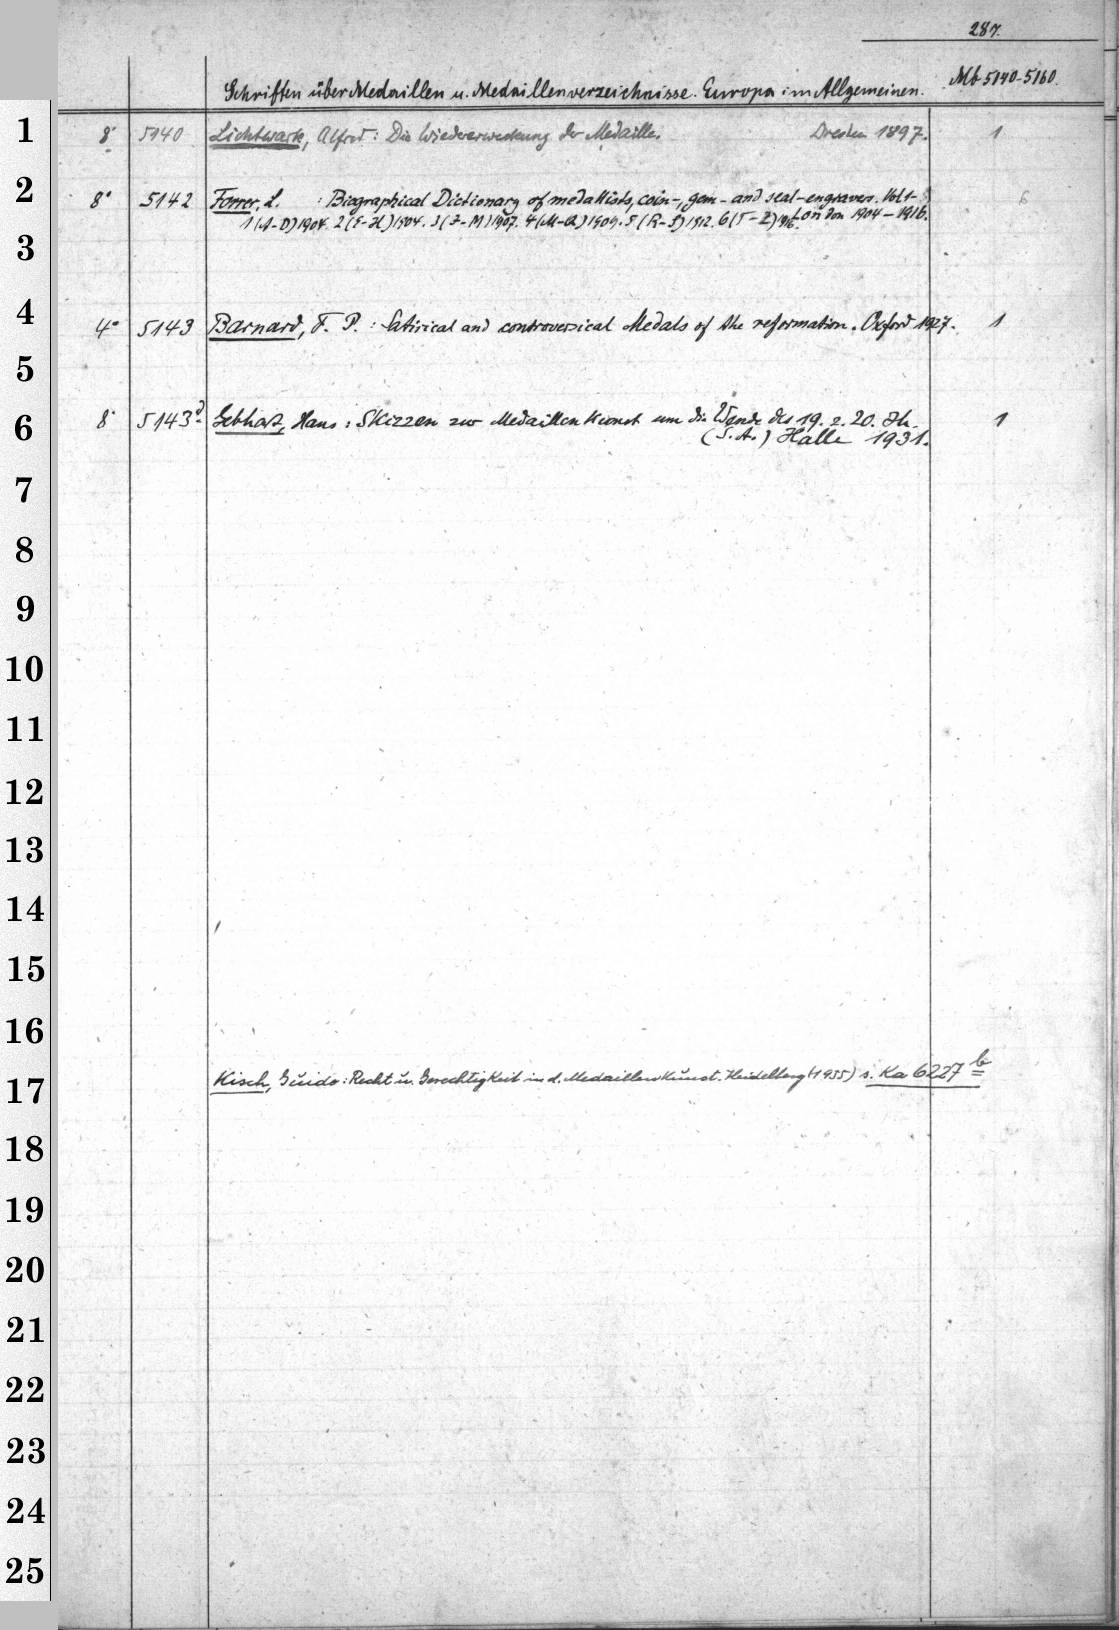 287.
Schriften über Medaillen u. Medaillenverzeichnisse. Europa im Allgemeinen. Mb 5140-5160.
1 8° 5140 Lichtwark, Alfred: Die Wiedererweckung der Medaille. Dresden 1897. 1
2 8° 5142 Forrer, L. : Biographical Dictionary of medallists, coin-, gem- and seal-engravers. Vol 1- 6
1(A-D)1904. 2(E-H)1904. 3(I-M)1907. 4(M-Q)1909. 5(R-S)1912. 6(T-Z)1916. London 1904-1916.
3
4 4° 5143 Barnard, F. P. : Satirical and controversical Medals of the reformation. Oxford 1927. 1
5
6 8° 5143d Gebhart, Hans : Skizzen zur Medaillenkunst um die Wende des 19. z. 20. Jh. 1
(S. A.) Halle 1931.
7
8
9
10
11
12
13
14
15
16
17 Kisch, Guido: Recht u. Gerechtigkeit in d. Medaillenkunst. Heidelberg (1955) s. Ka 6227 b
18
19
20
21
22
23
24
25